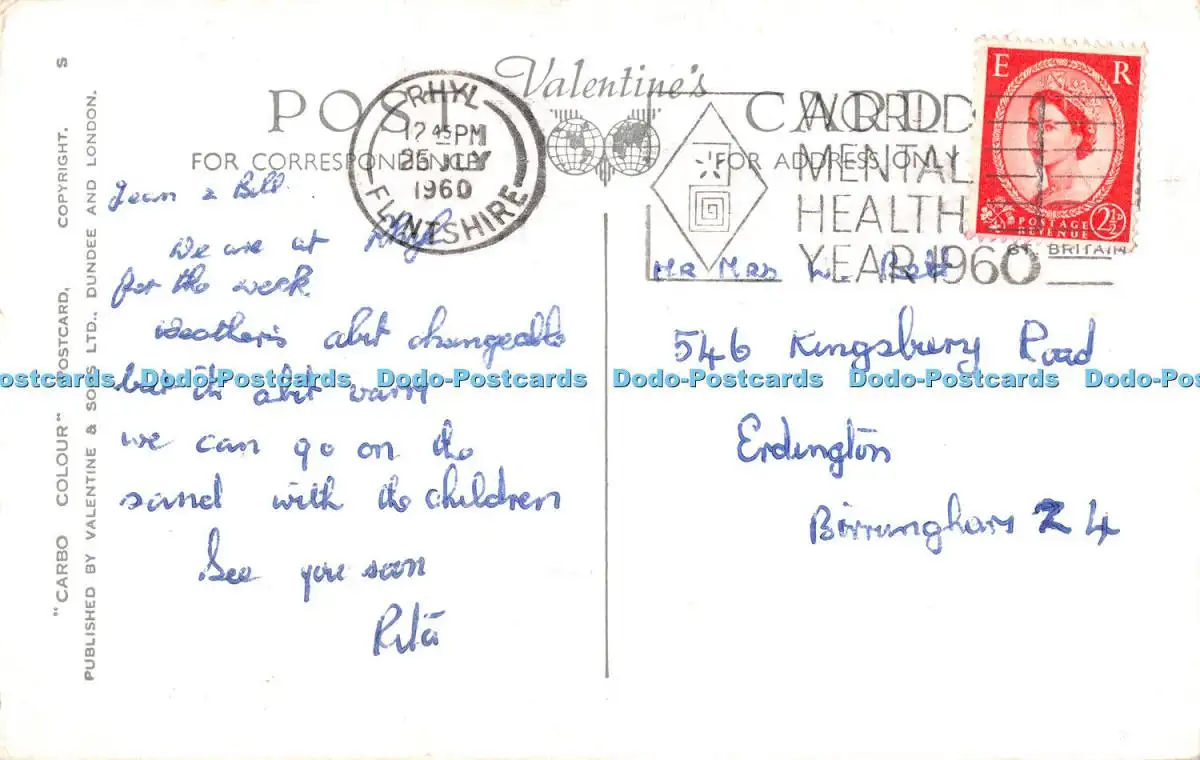 "CARBO COLOUR" POSTCARD. COPYRIGHT. S
PUBLISHED BY VALENTINE & SONS LTD., DUNDEE AND LONDON.
Valentine's
POST CARD
FOR CORRESPONDENCE FOR ADDRESS ONLY
RHYL
12 45 PM
25 JLY
1960
FLINTSHIRE
WORLD
MENTAL
HEALTH
YEAR 1960
E R
POSTAGE
REVENUE
2½D
GT. BRITAIN
Jean & Bill
We are at Rhyl
for the week
Weather's abit changeable
but it abit warm
we can go on the
sand with the children
See you soon
Rita
Mr Mrs
546 Kingsbury Road
Erdington
Birmingham 24
Dodo-Postcards Dodo-Postcards Dodo-Postcards Dodo-Postcards Dodo-Postcards Dodo-Postcards